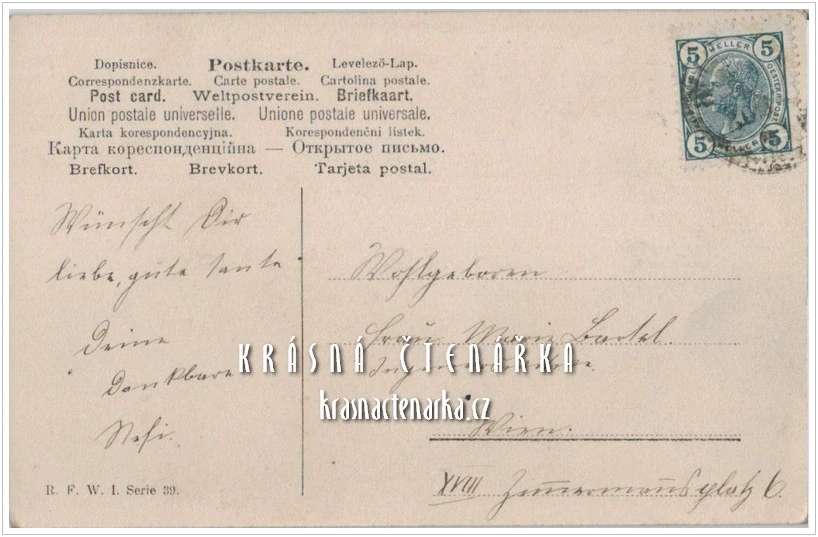 Dopisnice. Postkarte. Levelező-Lap.
Correspondenzkarte. Carte postale. Cartolina postale.
Post card. Weltpostverein. Briefkaart.
Union postale universelle. Unione postale universale.
Karta korespondencyjna. Korespondenční listek.
Карта кореспонденційна — Открытое письмо.
Brefkort. Brevkort. Tarjeta postal.
5 HELLER 5
5 HELLER 5
Wünscht Dir
liebe, gute Tante
Deine
Dankbare
R. F. W. I. Serie 39.
Wohlgeboren
Frau Marie Bartel.
Wien.
XVIII Zimmermannsplatz 6.
KRÁSNÁ ČTENÁŘKA
krasnactenarka.cz